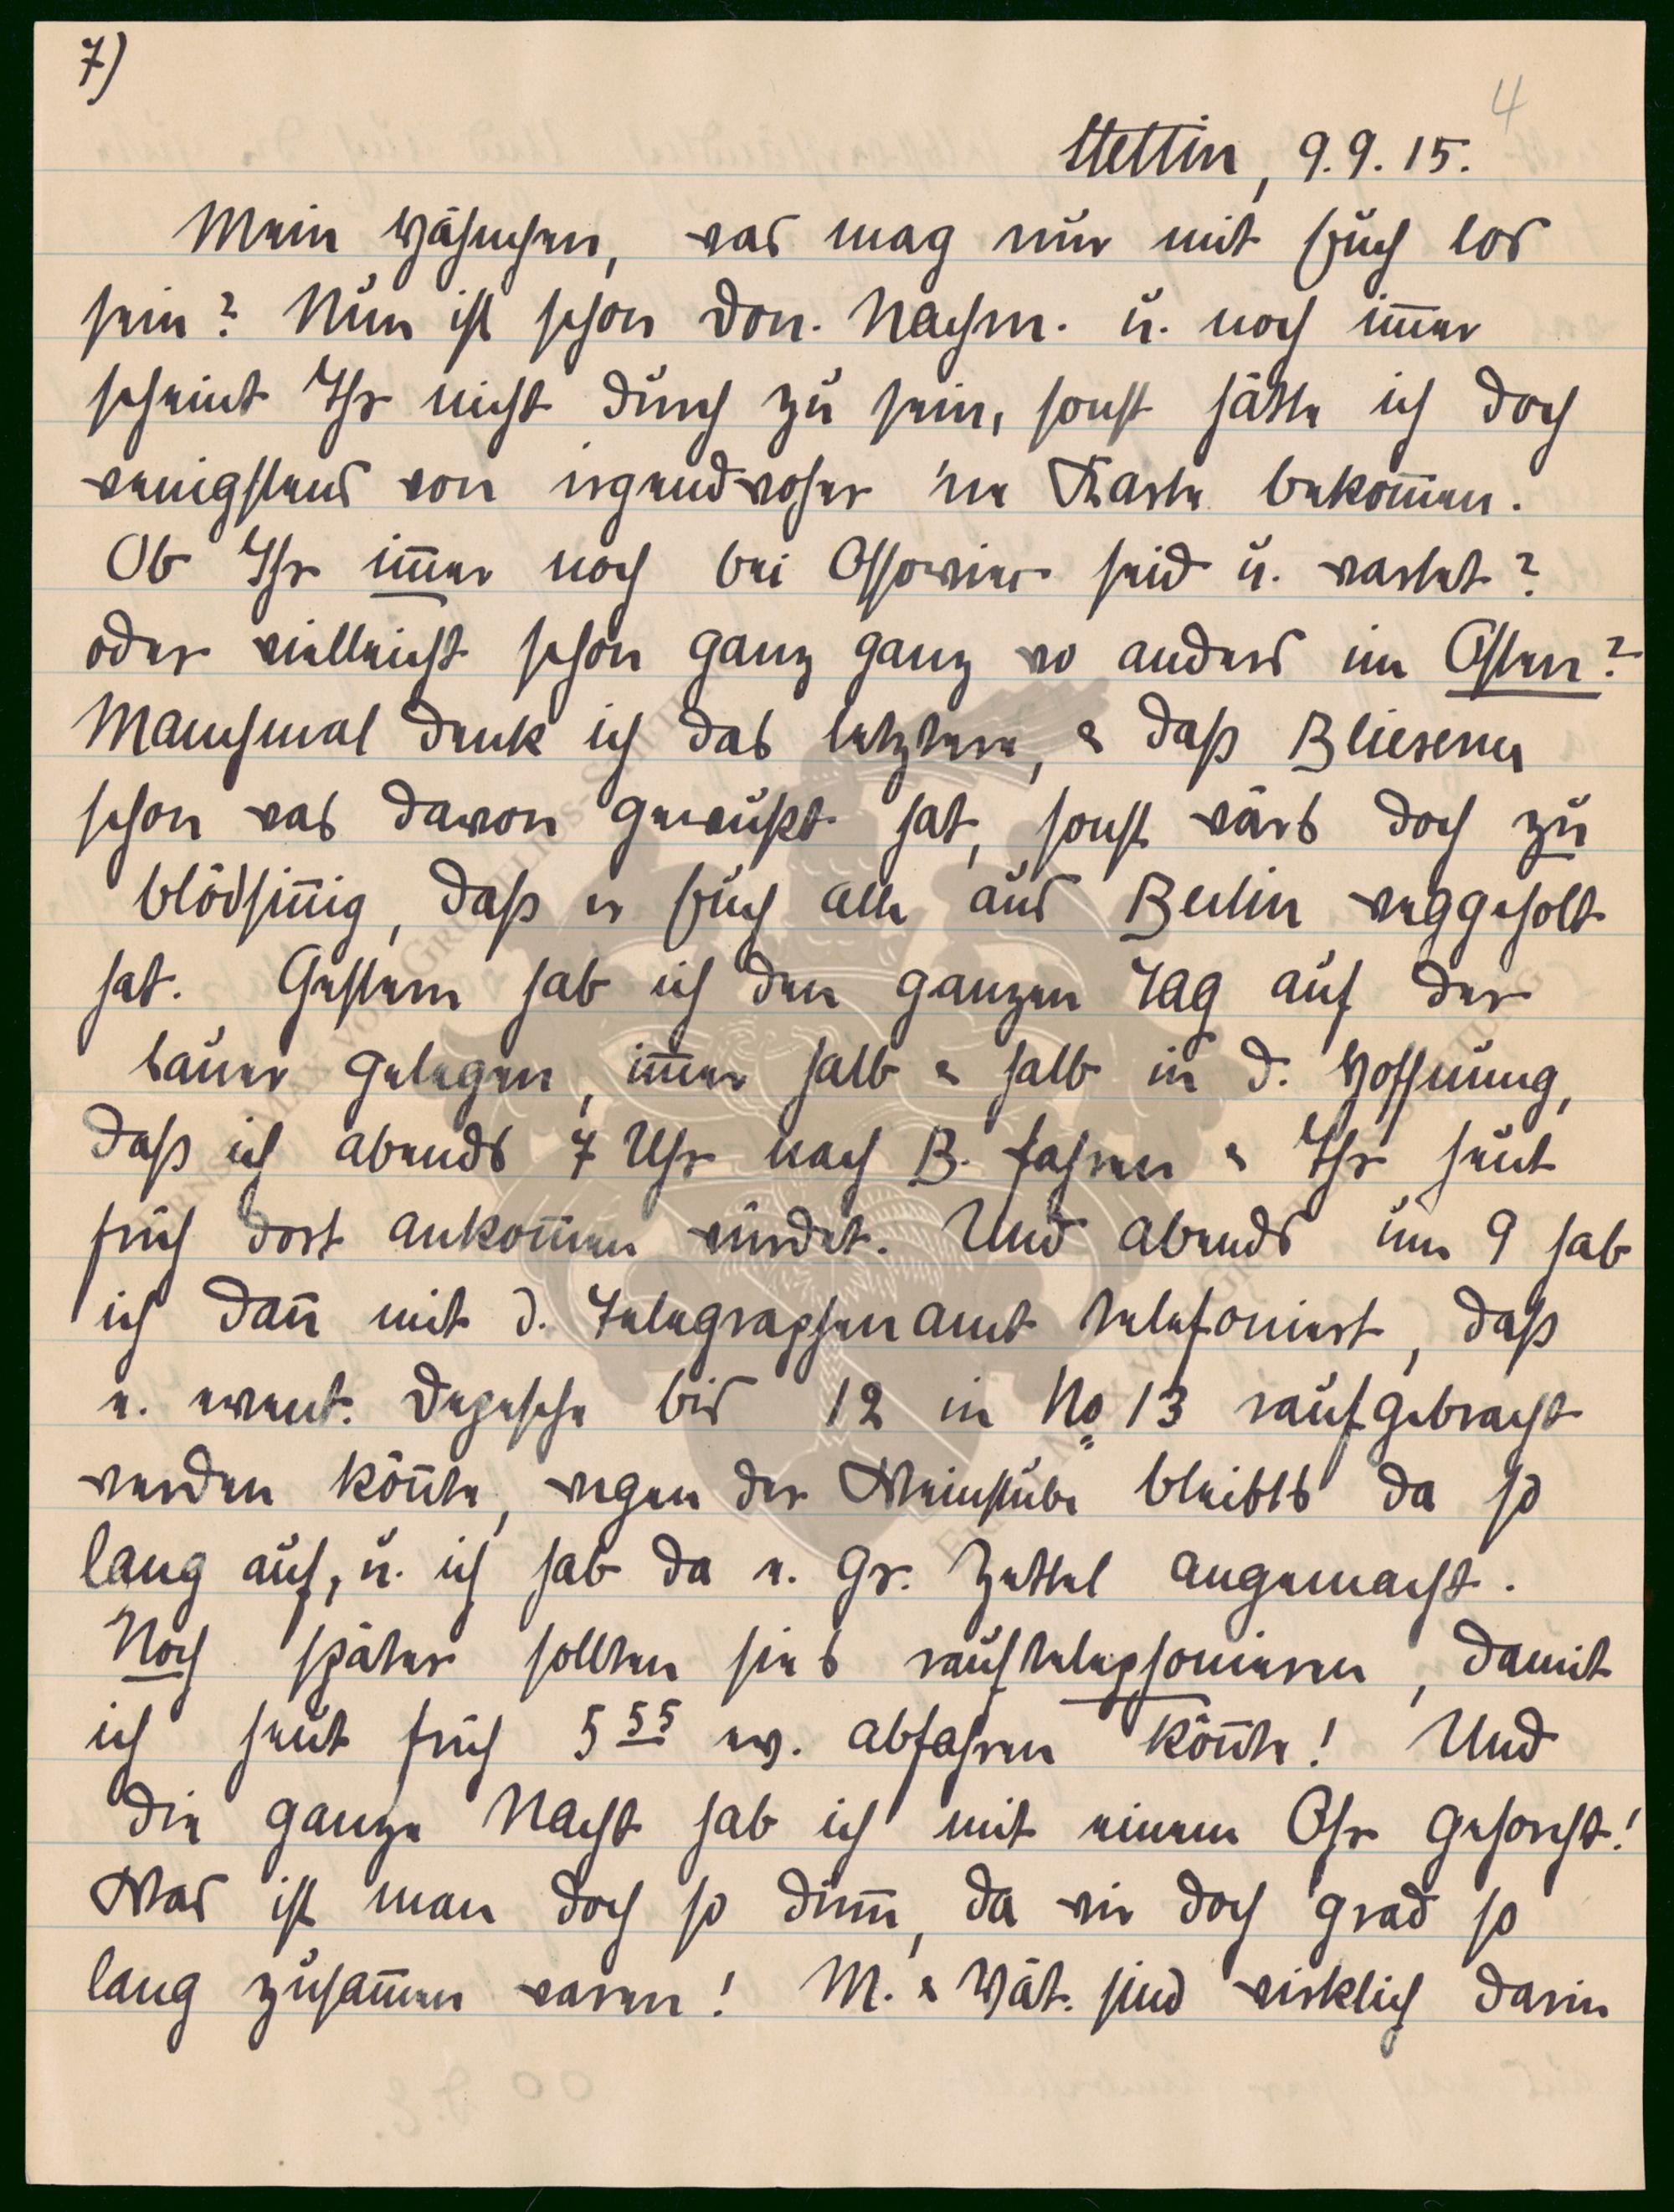 7)
4
Stettin, 9.9.15.
Mein Hähnchen, was mag nur mit Euch los
sein? Nun ist schon Don. Nachm. u. noch im̄er
scheint Ihr nicht durch zu sein, sonst hätte ich doch
wenigstens von irgendwoher 'ne Karte bekom̄en.
Ob Ihr im̄er noch bei Ossowiec seid u. wartet?
oder vielleicht schon ganz ganz wo anders im Osten?
Manchmal denk ich das letztere, & daß Bliesener
schon was davon gewußt hat, sonst wärs doch zu
blödsin̄ig, daß er Euch alle aus Berlin weggeholt
hat. Gestern hab ich den ganzen Tag auf der
Lauer gelegen, im̄er halb & halb in d. Hoffnung,
daß ich abends 7 Uhr nach B. fahren & Ihr heut
früh dort ankom̄en würdet. Und abends um 9 hab
ich dan̄ mit d. Telegraphenamt telefoniert, daß
e. event. Depesche bis 12 in No 13 raufgebracht
werden kön̄te, wegen der Weinstube bleibts da so
lang auf, u. ich hab da e. gr. Zettel angemacht.
Noch später sollten sies rauftelephonieren, damit
ich heut früh 5 55 ev. abfahren kön̄te! Und
die ganze Nacht hab ich mit einem Ohr gehorcht!
Was ist man doch so dum̄, da wir doch grad so
lang zusam̄en waren! M. & Vät. sind wirklich darin